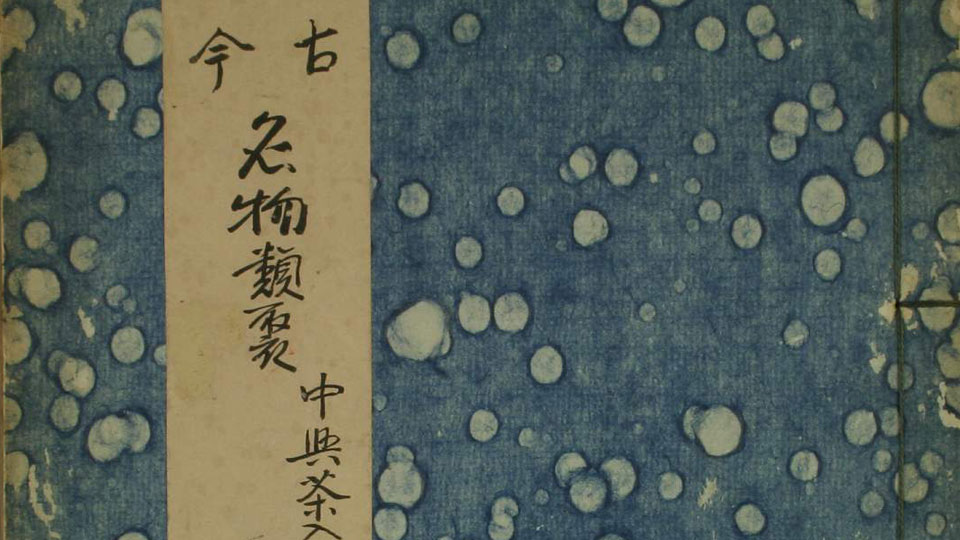 古今
名物類聚
中興茶入